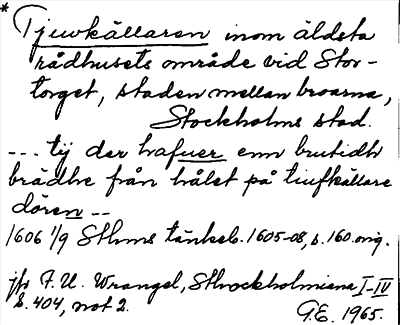 * Tjuvkällaren inom äldsta
rådhusets område vid Stor-
torget, staden mellan broarna,
Stockholms stad.
--- tÿ der hafuer enn brutidh
brädhe från hålet på tiufkällare
dören --
1606 1/9 Sthms tänkeb. 1605-08, s. 160 orig.
jfr F. U. Wrangel, Sthockholmiana I-IV
s. 404, not 2.
G.E. 1965.